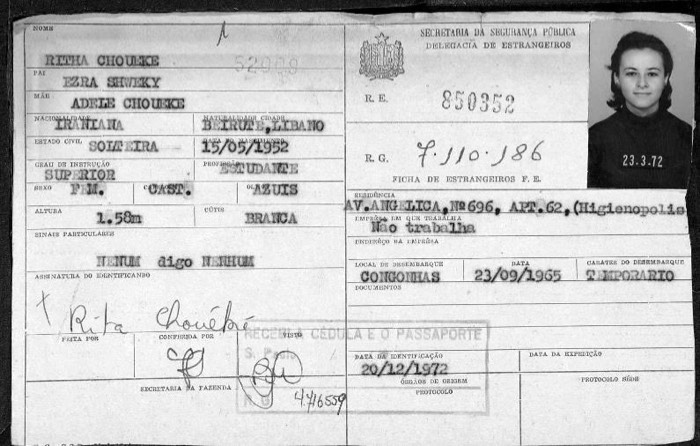 NOME
RITHA CHOUEKE
52009
PAI
EZRA SHWEKY
MÃE
ADELE CHOUEKE
NACIONALIDADE
NATURALIDADE CIDADE
IRANIANA
BEIRUTE, LIBANO
ESTADO CIVIL
SOLTEIRA
15/05/1952
GRAU DE INSTRUÇÃO
PROFISSÃO
SUPERIOR
ESTUDANTE
SEXO
FEM.
CAST.
AZUIS
ALTURA
1.58m
CÚTIS
BRANCA
SINAIS PARTICULARES
NENUM digo NENHUM
ASSINATURA DO IDENTIFICANDO
Rita Chouéké
FEITA POR
CONFERIDA POR
VISTO
SECRETARIA DA FAZENDA
4.416559
RECEBI A CÉDULA E O PASSAPORTE
SECRETARIA DA SEGURANÇA PÚBLICA
DELEGACIA DE ESTRANGEIROS
R. E.
850352
R. G.
7.110.186
FICHA DE ESTRANGEIROS F. E.
23.3.72
RESIDÊNCIA
AV. ANGELICA, Nº 696, APT. 62, (Higienopolis
EMPRÊSA EM QUE TRABALHA
Não trabalha
ENDERÊÇO DA EMPRÊSA
LOCAL DE DESEMBARQUE
DATA
CARATER DO DESEMBARQUE
CONGONHAS
23/09/1965
TEMPORARIO
DOCUMENTOS
DATA DA IDENTIFICAÇÃO
DATA DA EXPEDIÇÃO
20/12/1972
ÓRGÃOS DE ORIGEM
PROTOCOLO
PROTOCOLO SÉDE